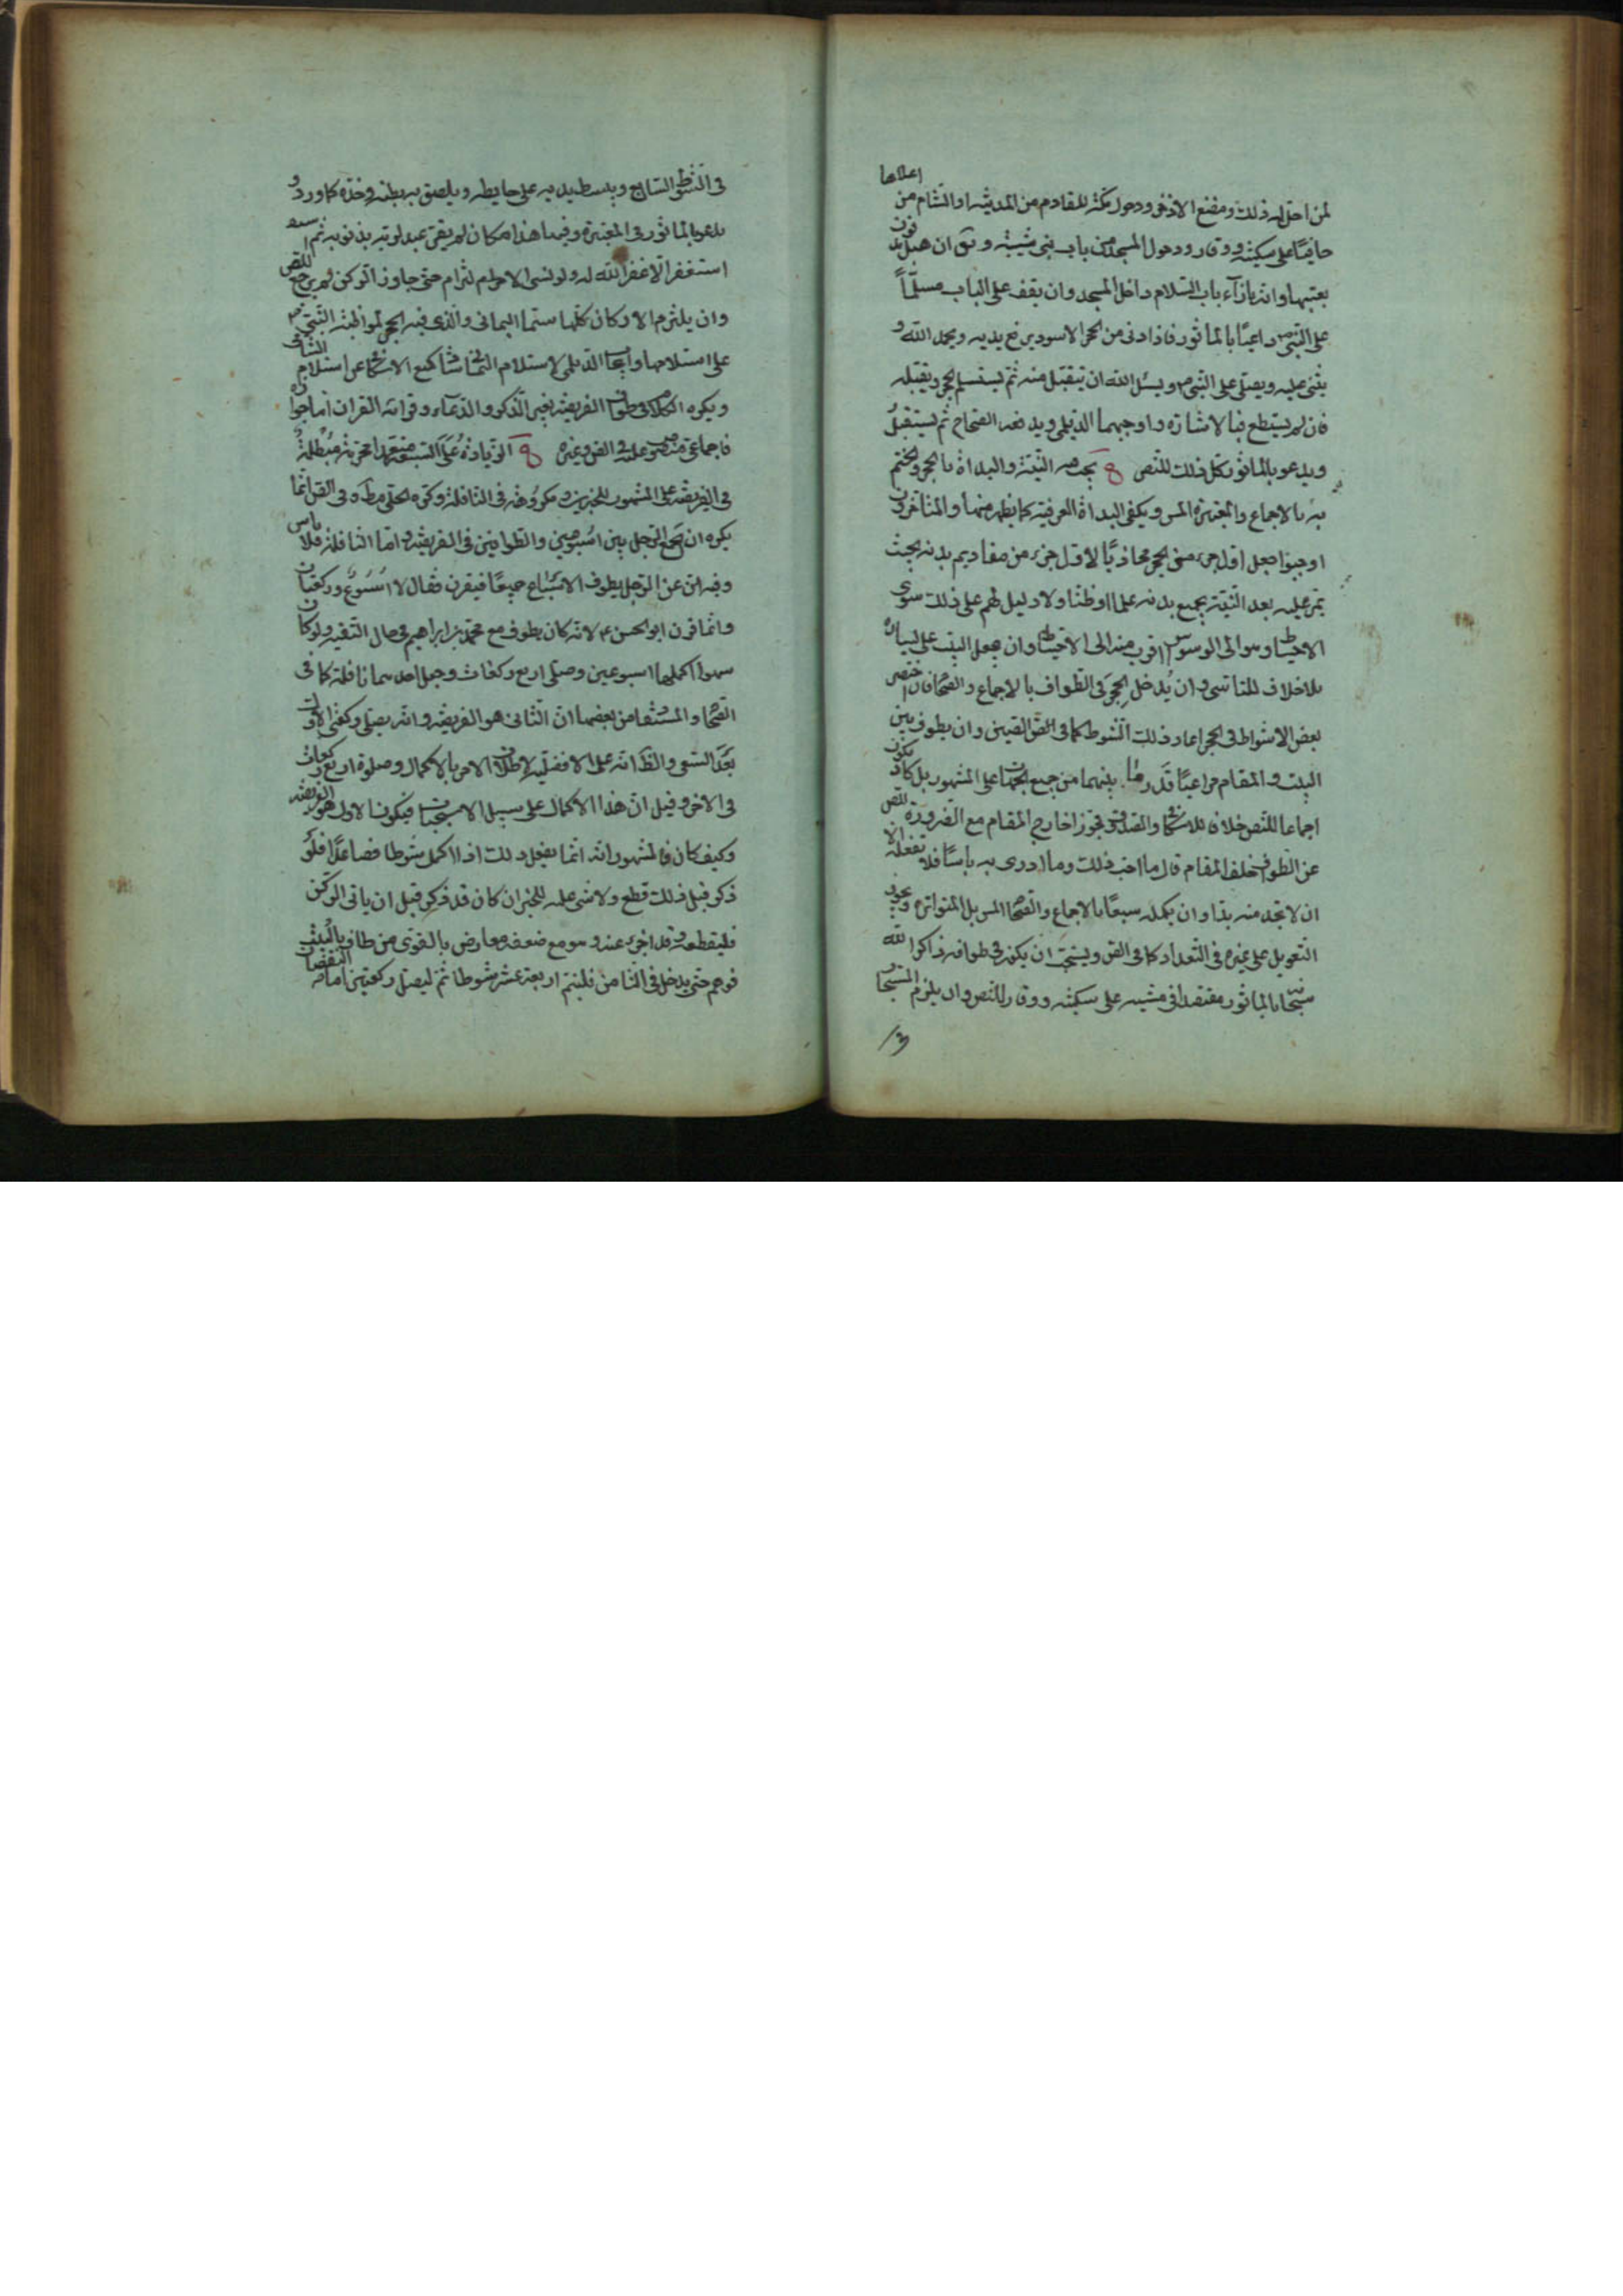 اعلاها
لمن احتل له ذلك ومضغ الاذخر ودخول مكة للقادم من المدينة او الشام من
حافيًا على سكينة ووقار ودخول المسجد من باب بنى شيبة وتق ان هبل مدفون
بعتبها وانه بازاء باب السلام داخل المسجد وان يقف على الباب مسلّمًا
على النبى ص داعيًا بالماثور فاذا دنى من الحجر الاسود يرفع يديه ويحمد الله و
يثنى عليه ويصلى على النبى ص ويسئل الله ان يتقبل منه ثم يستسلم الحجر ويقبله
فان لم يستطع فبالاشارة واوجبهما الديلمى ويدفعه الصحاح ثم يستقبل
ويدعو بالماثور كل ذلك للنص يجب فيه النية والبداة بالحجر والختم
به بالاجماع والمعتبرة المس ويكفى البداة العرفية كما يظهر منها والمتاخرون
اوجبوا جعل اول جزء من الحجر محاذيًا لاول جزء من مقاديم بدنه بحيث
يمر عليه بعد النية بجميع بدنه علما او ظنا ولا دليل لهم على ذلك سوى
الاحتياط وهو الى الوسواس اقرب منه الى الاحتياط وان يجعل البيت على يساره
بلا خلاف للتاسى وان يُدخل الحجر فى الطواف بالاجماع والصحاح فان اختصر
بعض الاشواط فى الحجر اعاد ذلك الشوط كما فى الصحيحين وان يطوف بين
البيت والمقام مراعيًا قدر ما بينهما من جميع الجهات على المشهور بل كاد يكون
اجماعا للنص خلافا للاسكافى والصدوق فجوزا خارج المقام مع الضرورة للنص
عن الطواف خلف المقام قال ما احب ذلك وما ارى به باسًا فلا تفعله الا
ان لا تجد منه بدا وان يكمله سبعًا بالاجماع والصحاح المس بل المتواترة ويجوز
التعويل على غيره فى التعداد كما فى الص ويستحب ان يكون فى طوافه ذاكرا لله
سبحانه بالماثور مقتصدا فى مشيه على سكينة ووقار للنص وان يلزم المستجار
فى الشوط السابع ويبسط يديه على حايطه ويلصق به بطنه وخده كما ورد و
يدعو بالماثور فى المعتبرة وفيها هذا مكان لم يقر عبد لربه بذنوبه ثم
استغفر الا غفر الله له ولو نسى الالتزام حتى جاوز الركن لم يرجع للنص
وان يلتزم الاركان كلها سيما اليمانى والذى فيه الحجر لمواظبة النبى ص
على استلامهما واوجب الديلمى استلام اليمانى شاذ كمنع الاسكافى عن استلام الشامى
ويكره الكلام فى طواف الفريضة بغير الذكر والدعاء وقرائة القران اما جوازه
فاجماعى منصوص عليه فى الص وغيره الزيادة على السبعة متعمدا محرمة مبطلة
فى الفريضة على المشهور للخبرين ومكروهة فى النافلة وكره الحلى مط وفى القران انما
يكره ان يجمع الرجل بين اسبوعين والطوافين فى الفريضة واما النافلة فلا باس
وفيه اخر عن الرجل يطوف الاسباع جميعًا فيقرن فقال لا اسبوع وركعتان
وانما قرن ابو الحسن ع لانه كان يطوف مع محمد بن ابراهيم فى حال التقية ولو كان
سهوا اكملها اسبوعين وصلى اربع ركعات وجعل احدهما نافلة كما فى
الصحاح والمستفاد من بعضها ان الثانى هو الفريضة وانه يصلى ركعتى الاولى
بعد السعى والظ انه على الافضلية لاطلاق الامر بالاكمال وصلوة اربع ركعات
فى الاخر وقيل ان هذا الاكمال على سبيل الاستحباب فيكون الاول هو الفريضة
وكيف كان فالمشهور انه انما يفعل ذلك اذا اكمل شوطا فصاعدًا فلو
ذكر قبل ذلك قطع ولا شى عليه للخبر ان كان قد ذكر قبل ان ياتى الركن
فليقطعه وقد اجزء عنه وهو مع ضعفه معارض بالقوى من طاف بالبيت
فوهم حتى يدخل فى الثامن فليتم اربعة عشر شوطا ثم ليصل ركعتين اما النقصان